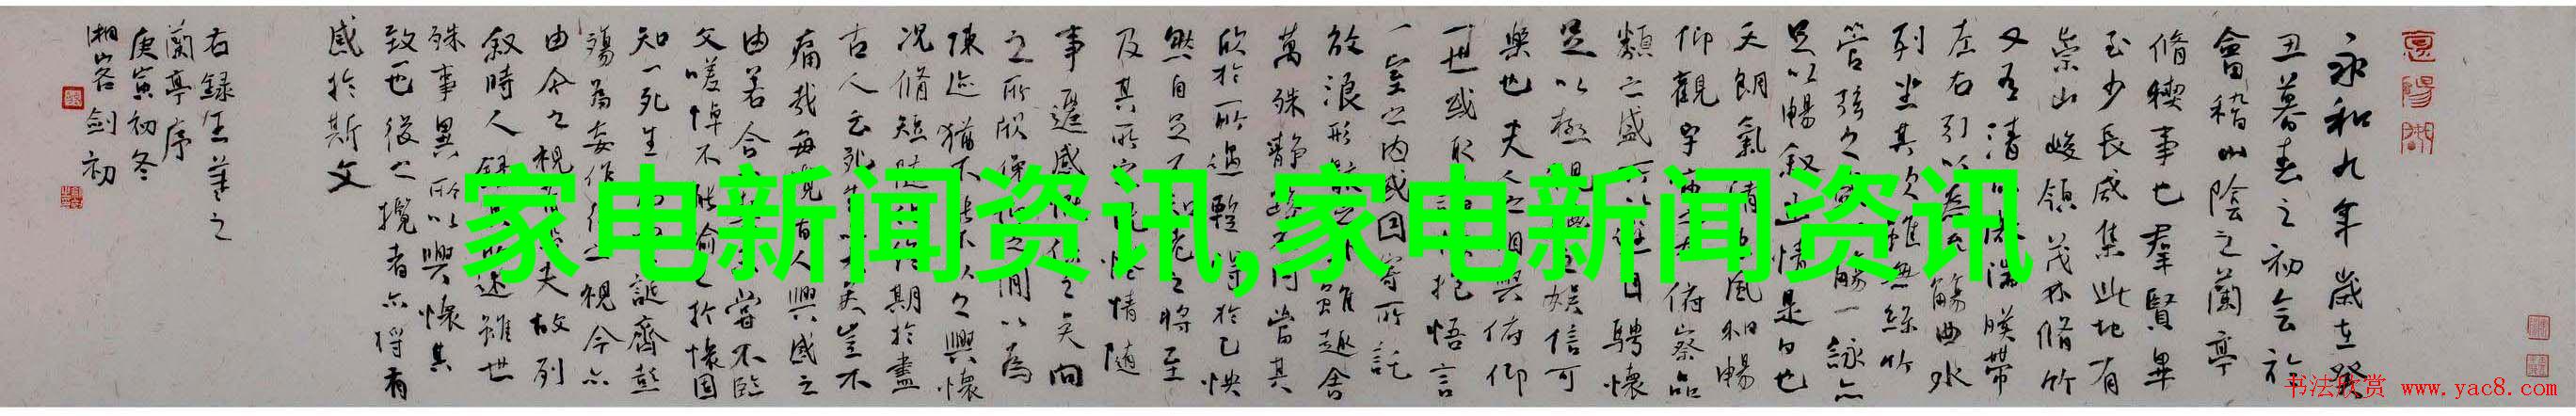 永和九年歲在癸
丑暮春之初会於
會稽山陰之蘭亭
脩稧事也羣賢畢
至少長咸集此地有
崇山峻領茂林脩竹
又有清流激湍暎帶
左右引以為流觴曲水
列坐其次雖無絲竹
管弦之盛一觴一詠亦
足以暢叙幽情是日也
天朗氣清惠風和暢
仰觀宇宙之大俯察品
類之盛所以遊目騁懷
足以極視聽之娛信可
樂也夫人之相與俯仰
一世或取諸懷抱悟言
一室之内或因寄所託
放浪形骸之外雖趣舍
萬殊靜躁不同當其
欣於所遇暫得於己快
然自足不知老之將至
及其所之既惓情隨
事遷感慨係之矣向
之所欣俛仰之間以為
陳迹猶不能不以之興懷
况脩短隨化終期於盡
古人云死生亦大矣豈不
痛哉每覽昔人興感之
由若合一契未嘗不臨
文嗟悼不能喻之於懷固
知一死生為虛誕齊彭
殤為妄作後之視今亦
由今之視昔悲夫故列
叙時人錄其所述雖世
殊事異所以興懷其
致一也後之攬者亦將有
感於斯文
右録王羲之
蘭亭序
庚寅初冬
湘客劍初
家电新闻资讯,家电新闻资讯
书法欣赏 www.yac8.com